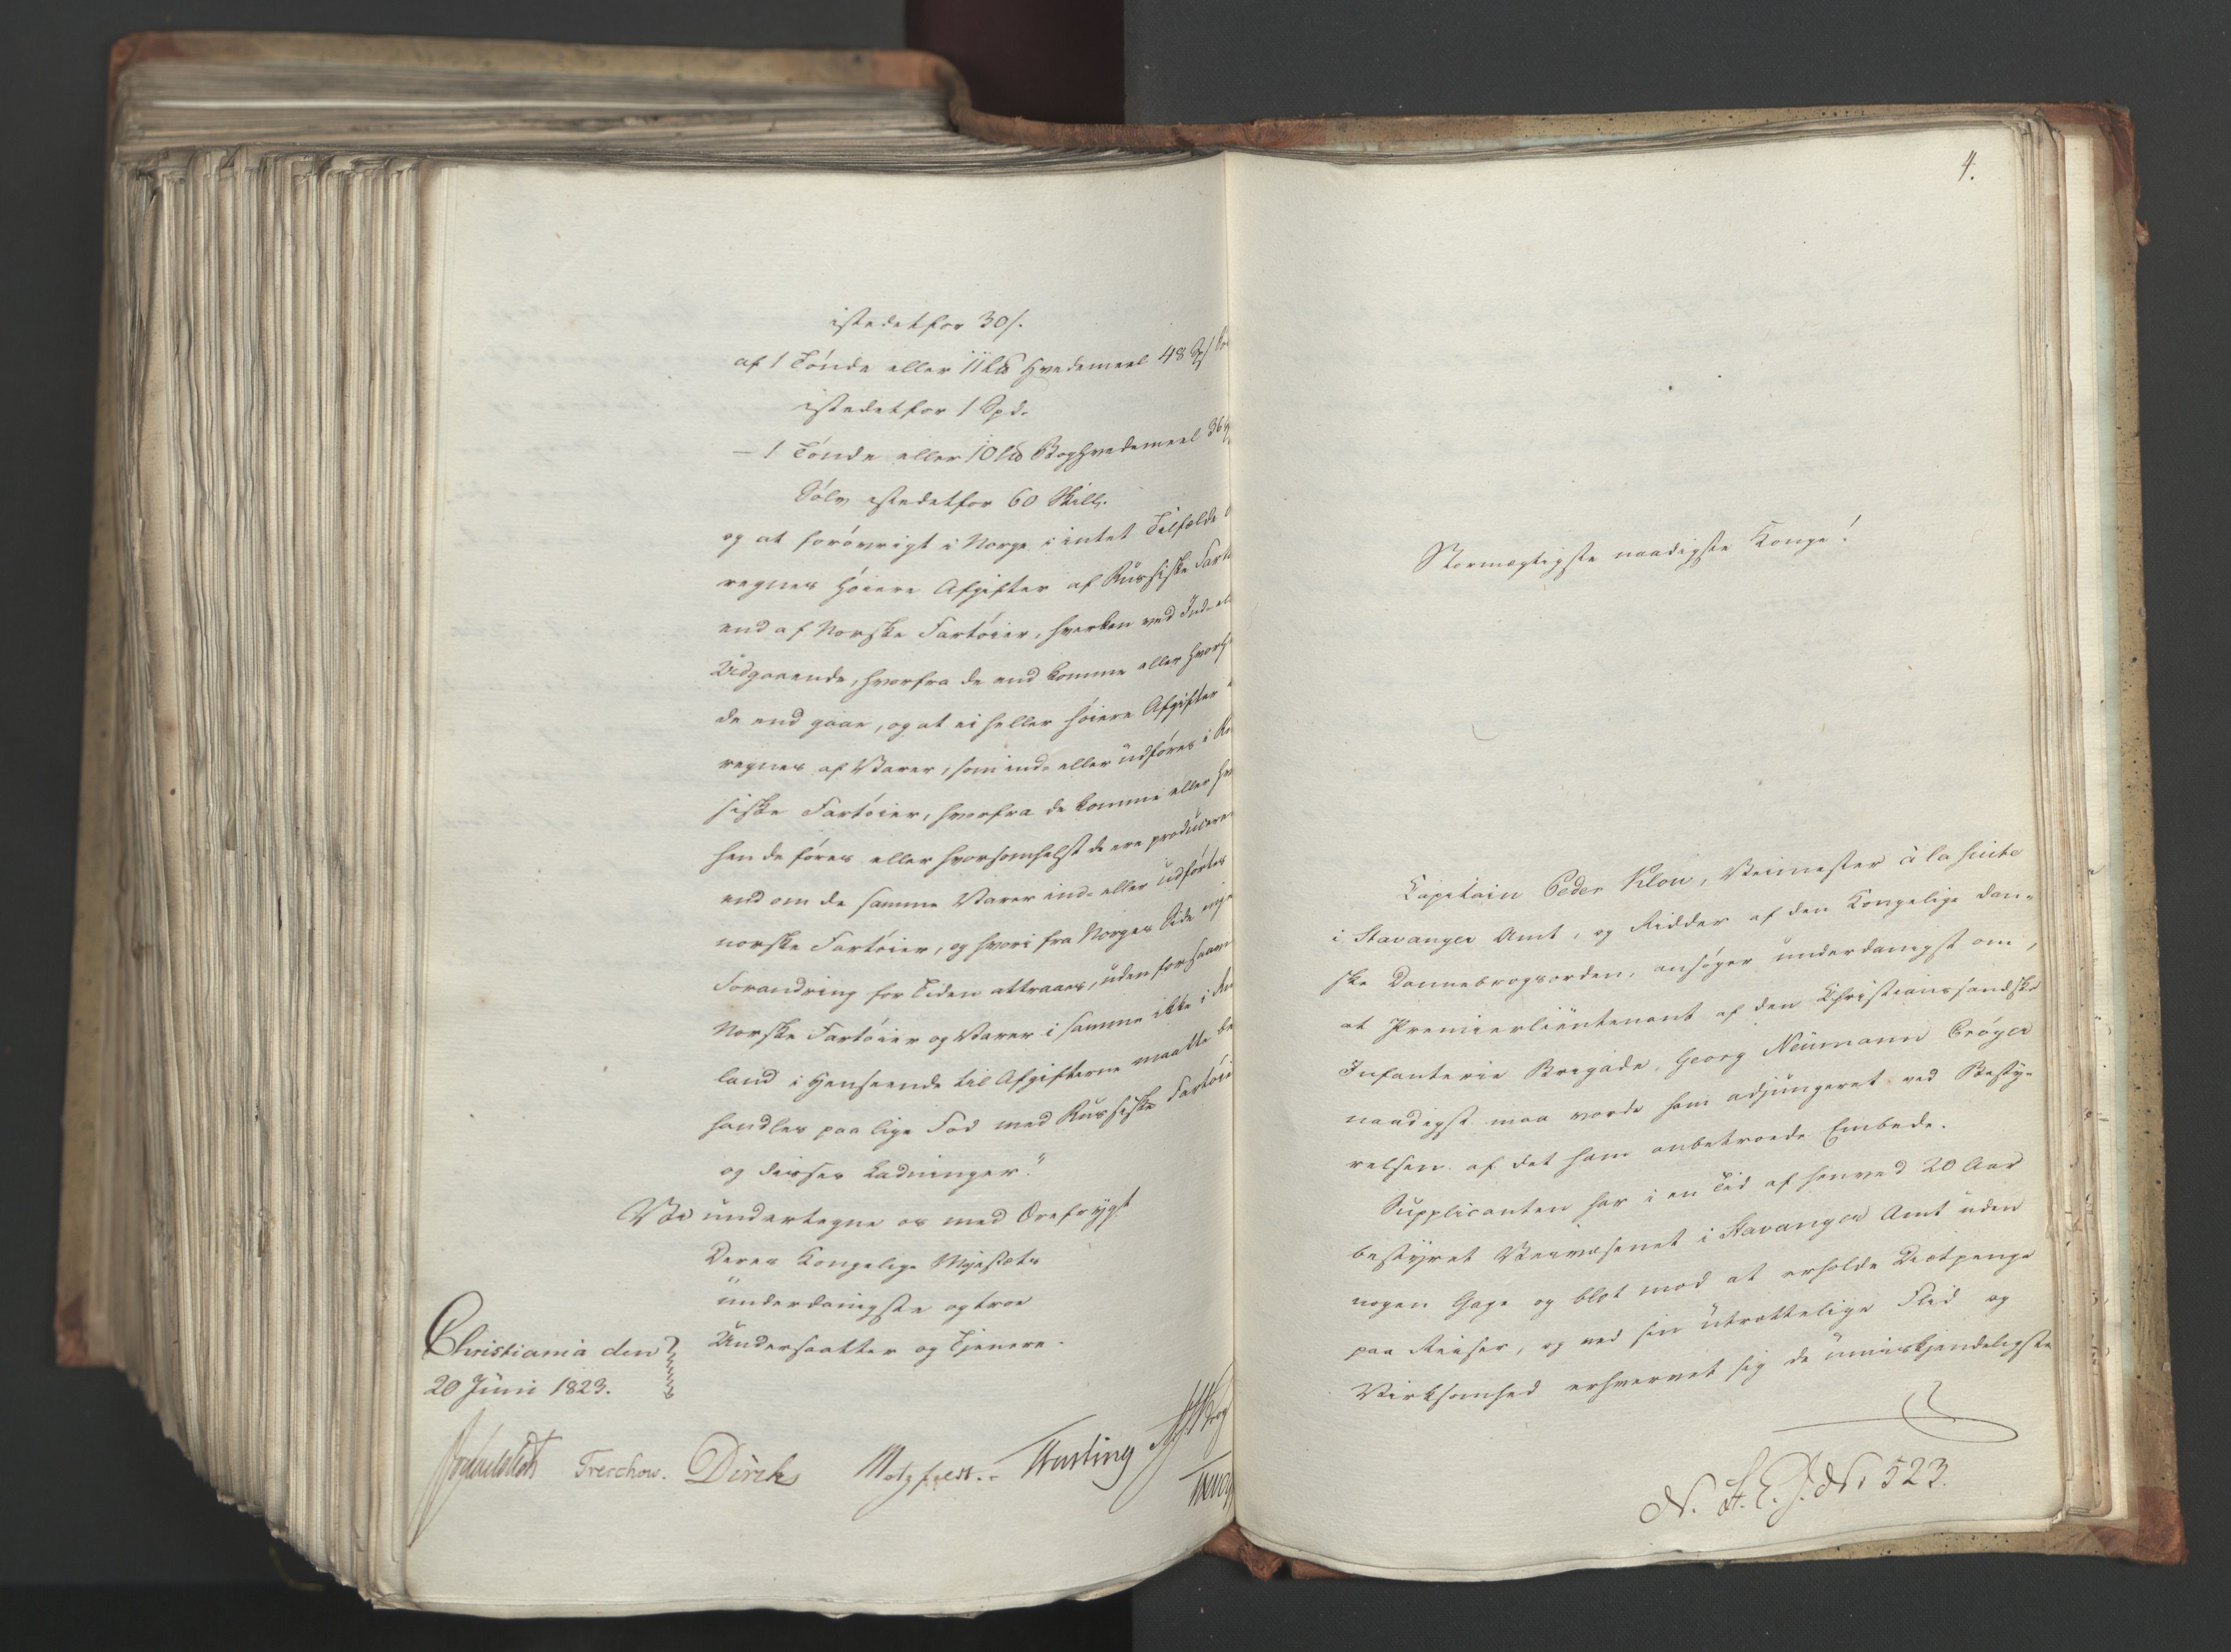 istedetfor 30 s.
af 1 Tønde eller 11 L℔ Hvedemeel 48
istedetfor 1 Spd.
— 1 Tønde eller 10 L℔ Boghvedemeel 36
Sölv istedetfor 60 Skill.
og at forøvrigt i Norge i intet Tilfælde
regnes høiere Afgifter af Russiske
end af Norske Fartøier, hverken ved Ind-
Udgaaende, hvorfra de end komme eller
de end gaae, og at ei heller høiere Afgifter
regnes af Varer, som ind- eller udføres i
siske Fartøier, hvorfra de komme eller
hen de føres eller hvorsomhelst de ere
end om de samme Varer ind- eller udførtes
norske Fartøier, og hvori fra Norges Side
Forandring for Tiden attraaes, uden
Norske Fartøier og Varer i samme ikke i
land i Henseende til Afgifterne maatte
handles paa lige Fod med Russiske
og disses Ladninger."
Vi undertegne os med Ærefrygt
Deres Kongelige Majestæts
underdanigste og troe
Undersaatter og Tjenere.
Christiania den
20 Juni 1823.
Treschow. Diriks Motzfeldt.
4.
Stormægtigste naadigste Konge!
Kapitain Peder Klow, Veimester à la suite
i Stavanger Amt, og Ridder af den Kongelige Dan-
ske Dannebrogsorden, ansøger underdanigst om,
at Premierlieutenant af den Christianssandske
Infanterie Brigade, Georg Neumann Crøger
naadigst maa vorde ham adjungeret ved Besty-
relsen af det ham anbetroede Embede.
Supplicanten har i en Tid af henved 20 Aar
bestyret Veivæsenet i Stavanger Amt uden
nogen Gage og blot mod at erholde Diætpenge
paa Reiser, og ved sin utrættelige Flid og
Virksomhed erhvervet sig de umiskjendeligste
N. 523.